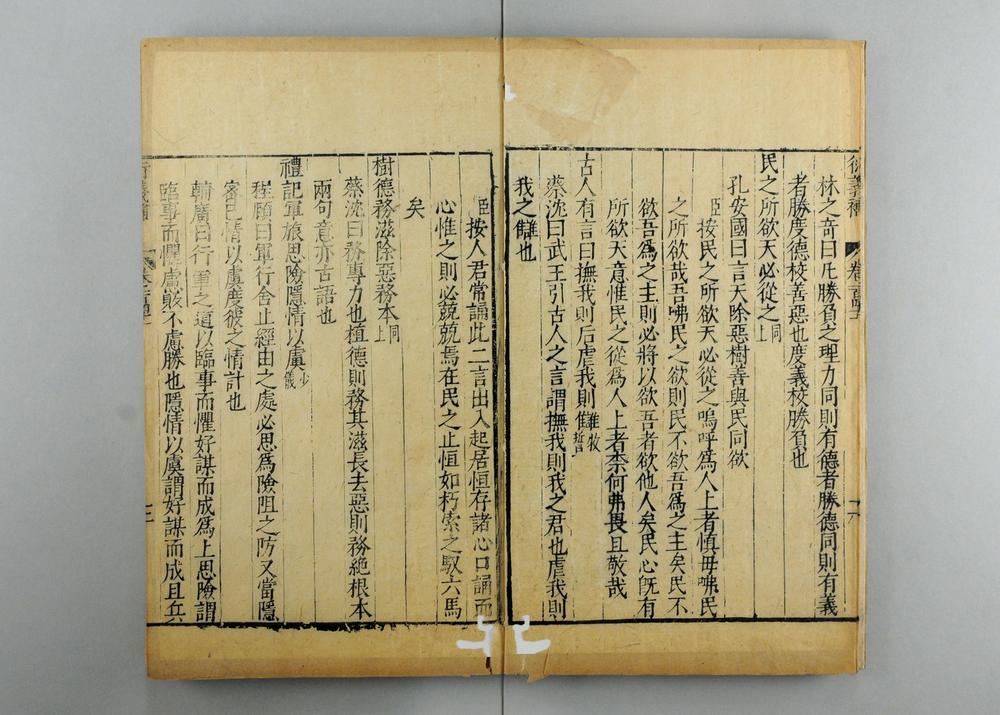 衍義補 卷一百四十三 十六
林之奇曰凡勝負之理力同則有德者勝德同則有義
者勝度德校善惡也度義校勝負也
民之所欲天必從之同上
孔安國曰言天除惡樹善與民同欲
臣按民之所欲天必從之嗚呼為人上者慎毋咈民
之所欲哉吾咈民之欲則民不欲吾為之主矣民不
欲吾為之主則必將以欲吾者欲他人矣民心旣有
所欲天意惟民之從為人上者柰何弗畏且敬哉
古人有言曰撫我則后虐我則讎牧誓
蔡沈曰武王引古人之言謂撫我則我之君也虐我則
我之讎也
臣按人君常誦此二言出入起居恒存諸心口誦而
心惟之則必兢兢焉在民之上恒如朽索之馭六馬
矣
樹德務滋除惡務本同上
蔡沈曰務專力也植德則務其滋長去惡則務絶根本
兩句意亦古語也
禮記軍旅思險隱情以虞少儀
程頤曰軍行舍止經由之處必思為險阻之防又當隱
密己情以虞度彼之情計也
輔廣曰行軍之道以臨事而懼好謀而成為上思險謂
臨事而懼慮敗不慮勝也隱情以虞謂好謀而成且兵